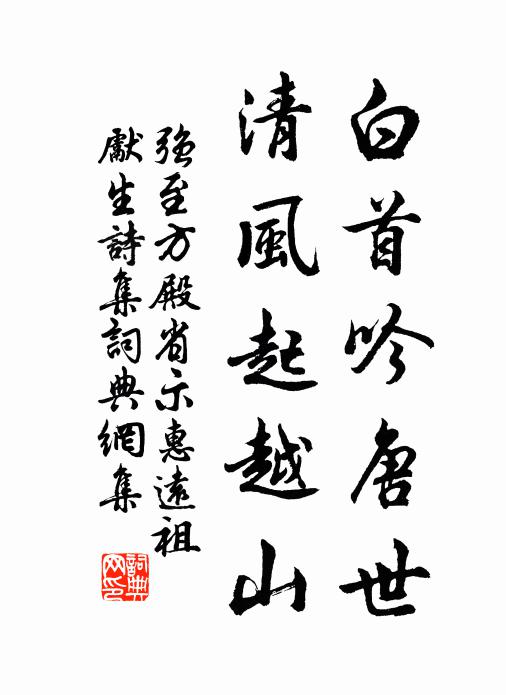 白首吟唐世
清風起越山
強至方殿省示惠遠祖
獻生詩集詞典網集
詞典網印